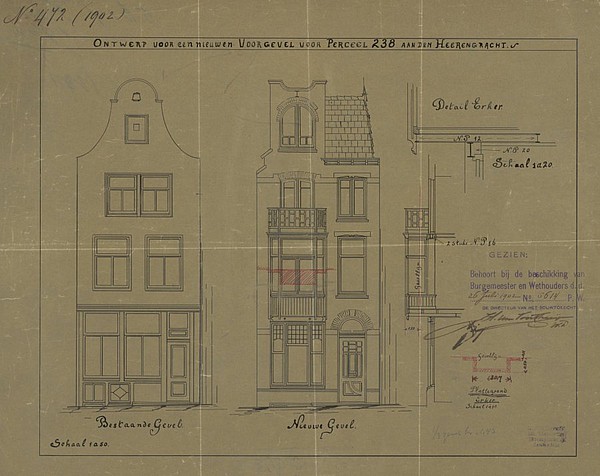 No 472 (1902)
ONTWERP VOOR EEN NIEUWEN VOORGEVEL VOOR PERCEEL 238 AAN DEN HEERENGRACHT.
Detail Erker.
N.P. 12
N.P. 20
Schaal 1 a 20.
N.P. 16
GEZIEN:
Behoort bij de beschikking van
Burgemeester en Wethouders d.d.
25 Juli 1902 No. P.W.
DE DIRECTEUR VAN HET BOUWTOEZICHT
Gevellijn
Gevellijn
Plattegrond
Erker
Bestaande Gevel.
Nieuwe Gevel.
Schaal 1 a 50.